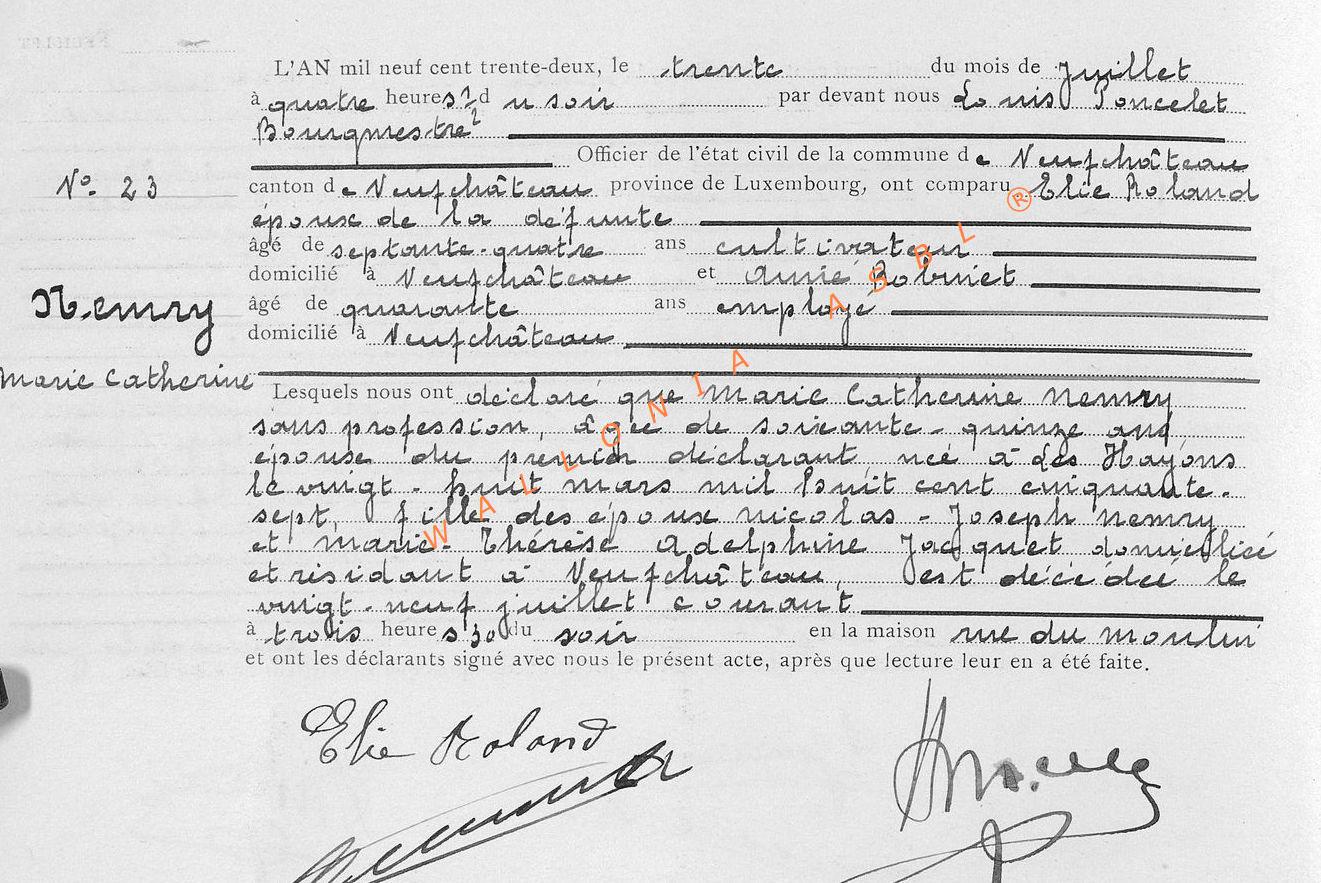 L'AN mil neuf cent trente-deux, le trente du mois de Juillet
à quatre heures ½ du soir par devant nous Louis Poncelet
Bourgmestre
Officier de l'état civil de la commune de Neufchâteau
No. 23
canton de Neufchâteau province de Luxembourg, ont comparu Elie Roland
époux de la défunte
âgé de septante-quatre ans cultivateur
domicilié à Neufchâteau et Aimé Robinet
Nemry
âgé de quarante ans employé
domicilié à Neufchâteau
Marie Catherine
Lesquels nous ont déclaré que Marie Catherine Nemry
sans profession, âgée de soixante-quinze ans
épouse du premier déclarant née à Les Hayons
le vingt-huit mars mil huit cent cinquante-
sept, fille des époux Nicolas-Joseph Nemry
et Marie-Thérèse Adelphine Jacquet domiciliée
et résidant à Neufchâteau, est décédée le
vingt-neuf juillet courant
à trois heures 30 du soir en la maison rue du Moulin
et ont les déclarants signé avec nous le présent acte, après que lecture leur en a été faite.
Elie Roland
WALLONIA ASBL ®